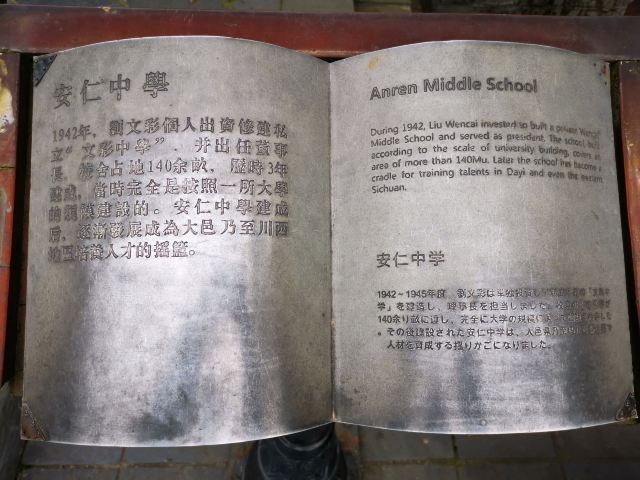 安仁中學
1942年，劉文彩個人出資修建私
立“文彩中學”．并出任董事
長，校舍占地140余畝，歷時3年
建成，當時完全是按照一所大學
的規模建設的。安仁中學建成
后，逐漸發展成為大邑乃至川西
地區培養人才的搖籃。
Anren Middle School
During 1942, Liu Wencai invested to built a private Wencai
Middle School and served as president. The school built
according to the scale of university building, covers an
area of more than 140Mu. Later the school has become a
cradle for training talents in Dayi and even the eastern
Sichuan.
安仁中学
1942～1945年度 劉文彩は単独投資し
学」を建造し、理事長を担当しました。
140余り畝に達し、完全に大学の規模に
。その後建設された安仁中学は、大邑県
人材を育成する揺りかごになりました。